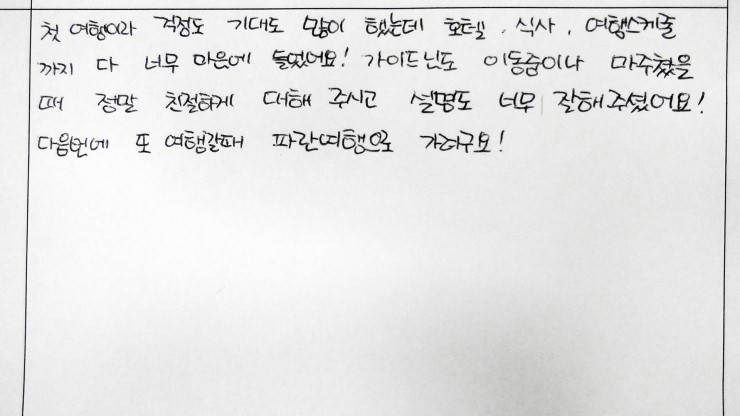 첫 여행이라 걱정도 기대도 많이 했는데 호텔, 식사, 여행스케줄
까지 다 너무 마음에 들었어요! 가이드님도 이동중이나 마주쳤을
때 정말 친절하게 대해 주시고 설명도 너무 잘해주셨어요!
다음번에 또 여행갈때 파란여행으로 가려구요!